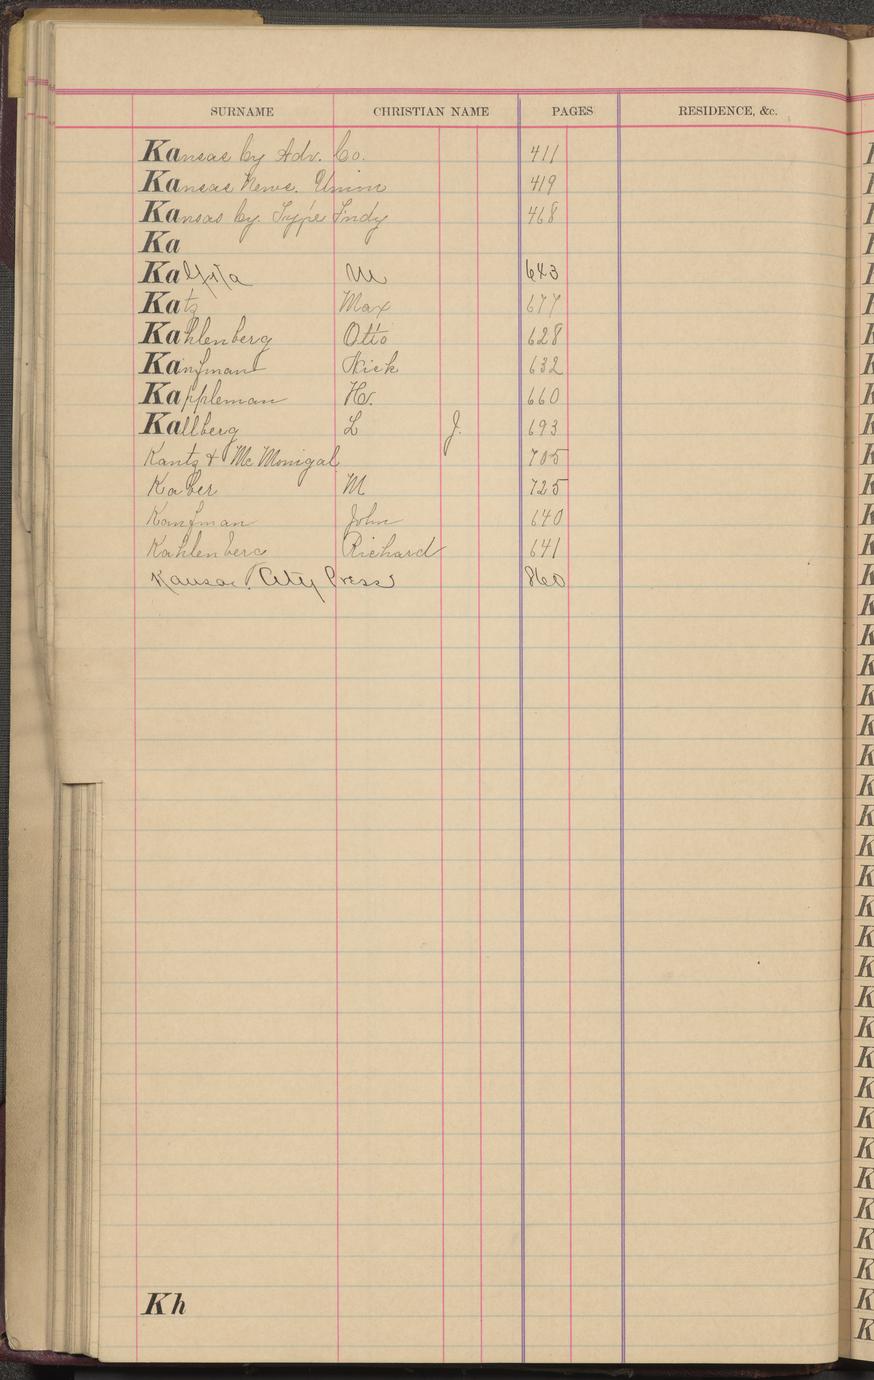 SURNAME CHRISTIAN NAME PAGES RESIDENCE, &c.
Kansas Cy Adv. Co. 411
Kansas News. Union 419
Kansas Cy. Type Fndy 468
Ka
Ka M 643
Katz Max 677
Kahlenberg Otto 628
Kaufman Nick 632
Kappleman H. 660
Kallberg L J. 693
Kantz & McMonigal 705
Kaber M 725
Kaufman John 640
Kahlenberg Richard 641
Kansas City Press 860
Kh